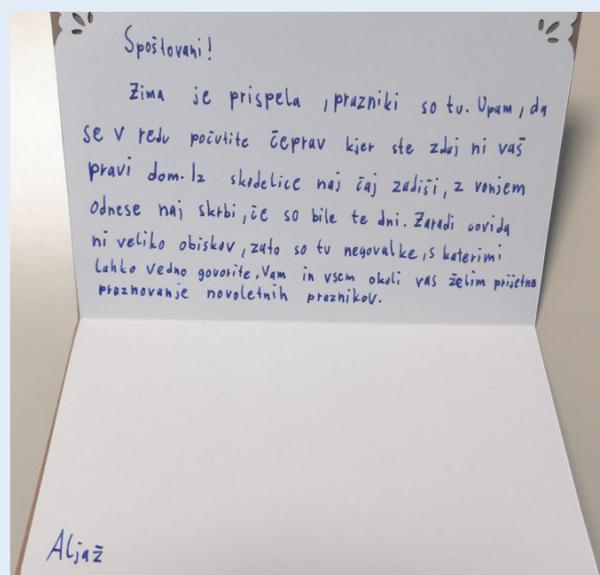 Spoštovani!
Zima je prispela, prazniki so tu. Upam, da
se v redu počutite čeprav kjer ste zdaj ni vaš
pravi dom. Iz skodelice naj čaj zadiši, z vonjem
odnese naj skrbi, če so bile te dni. Zaradi covida
ni veliko obiskov, zato so tu negovalke, s katerimi
lahko vedno govorite. Vam in vsem okoli vas želim prijetno
praznovanje novoletnih praznikov.
Aljaž